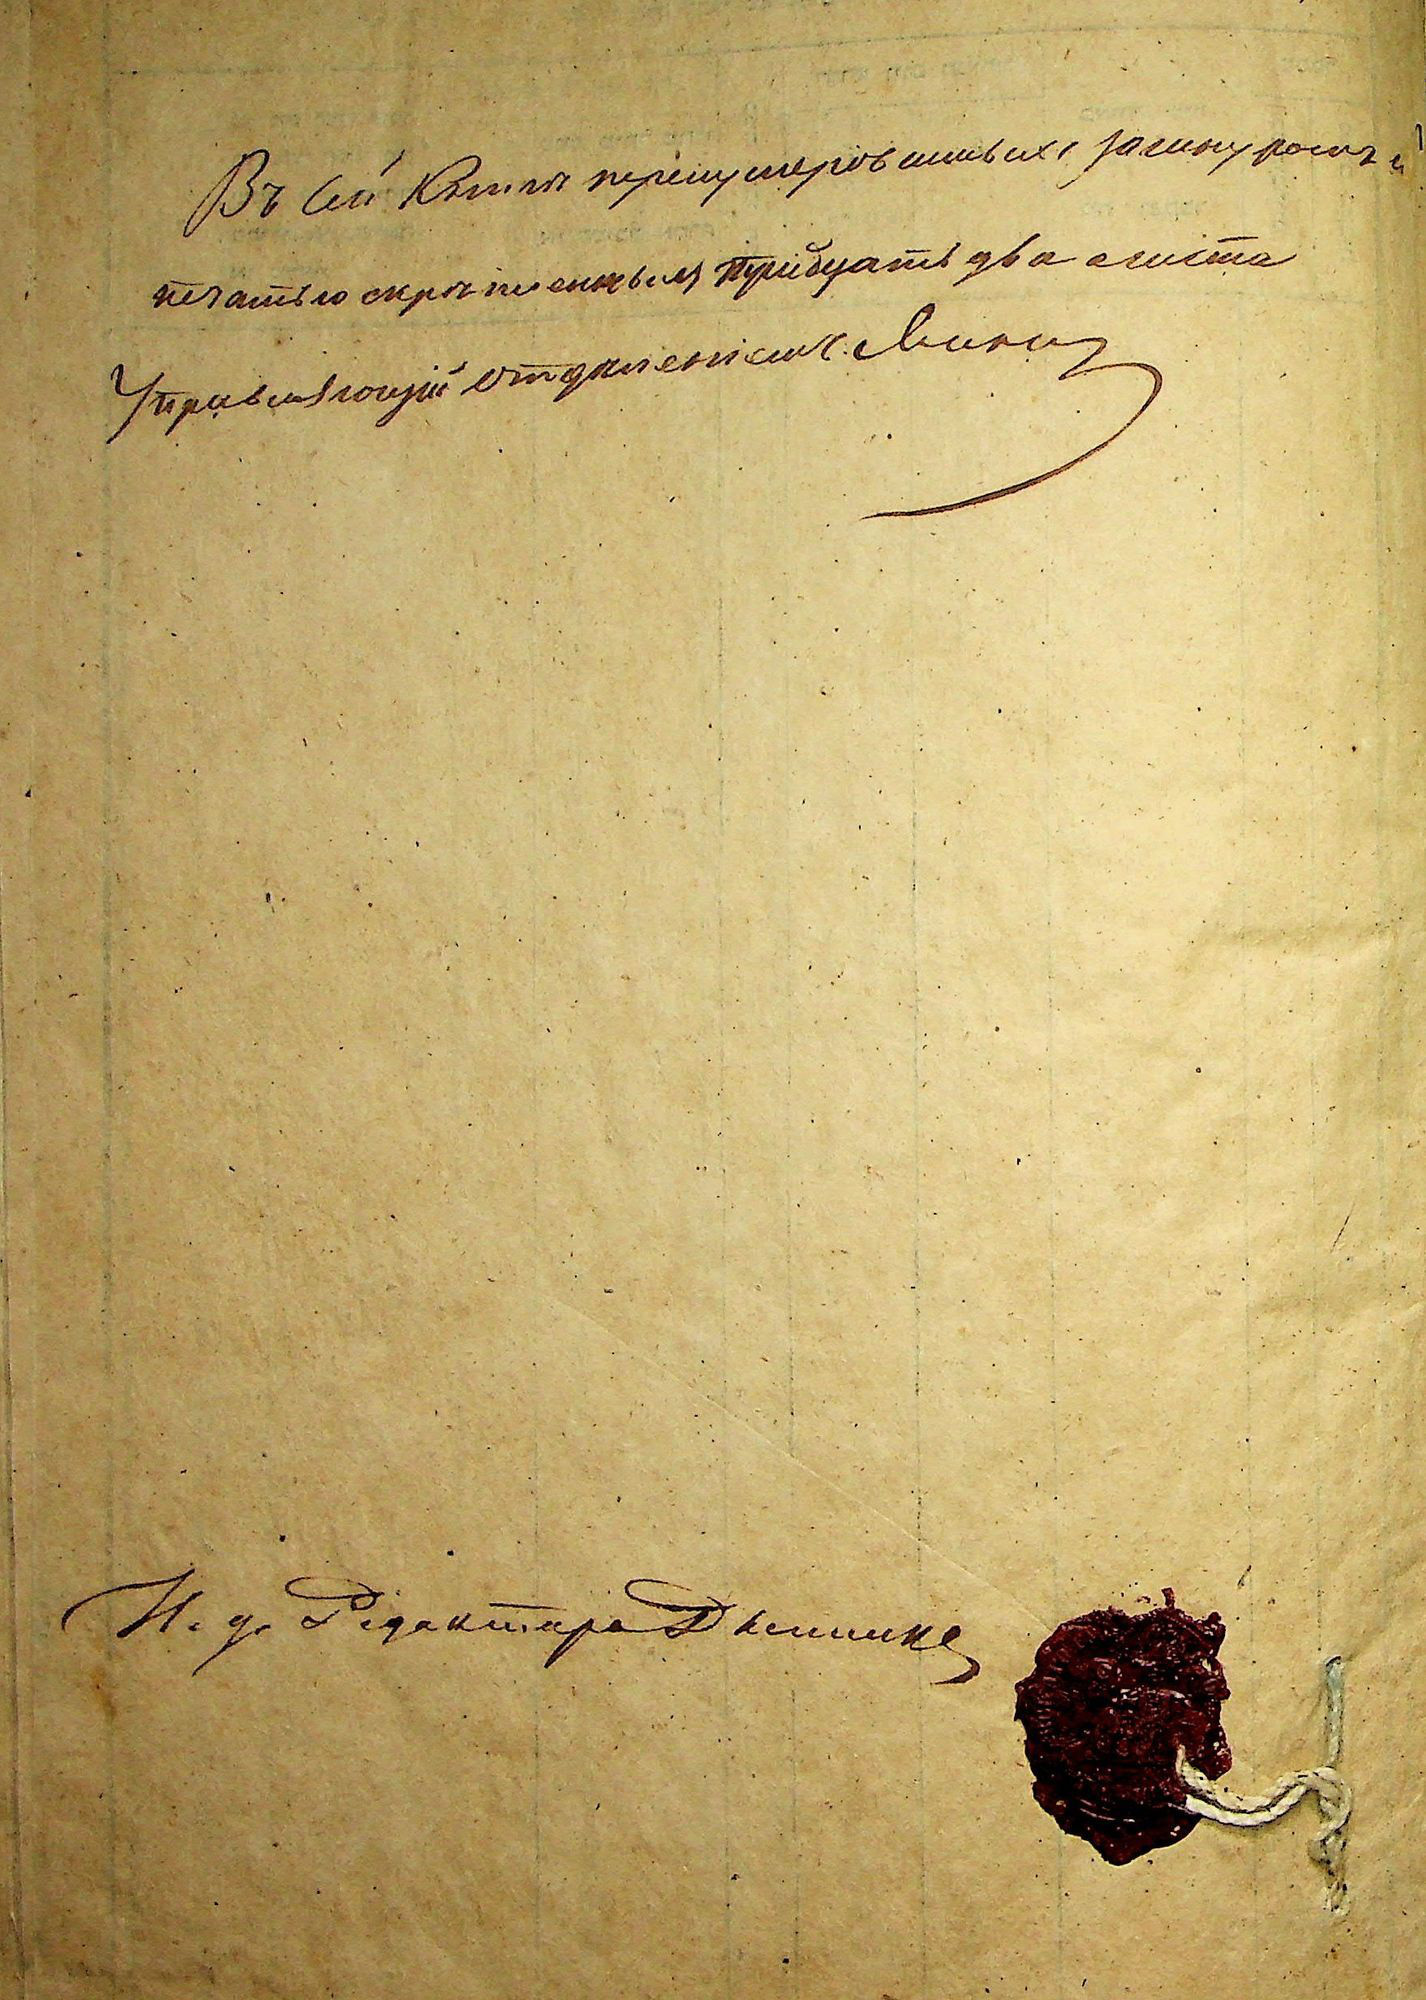 Въ сей Книгѣ перенумерованныхъ за шнуромъ и
печатью скрѣпленныхъ тридцать два листа
Управляющій отдѣленіемъ
И. д. Редактора